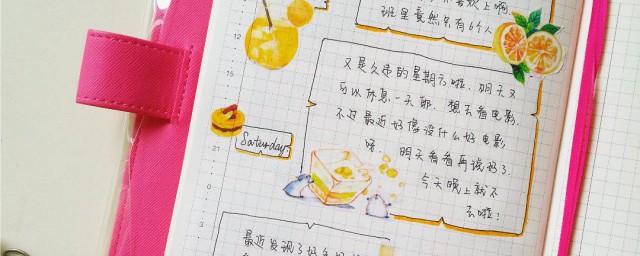 欢上啊
班里竟然只有6个人
12
15
又是久违的星期六啦,明天又
可以休息一天耶,想去看电影,
不过最近好像没什么好电影
呀,明天看看再说好了.
今天晚上就不
去啦!
Saturday.
21
3
最近发现了好多